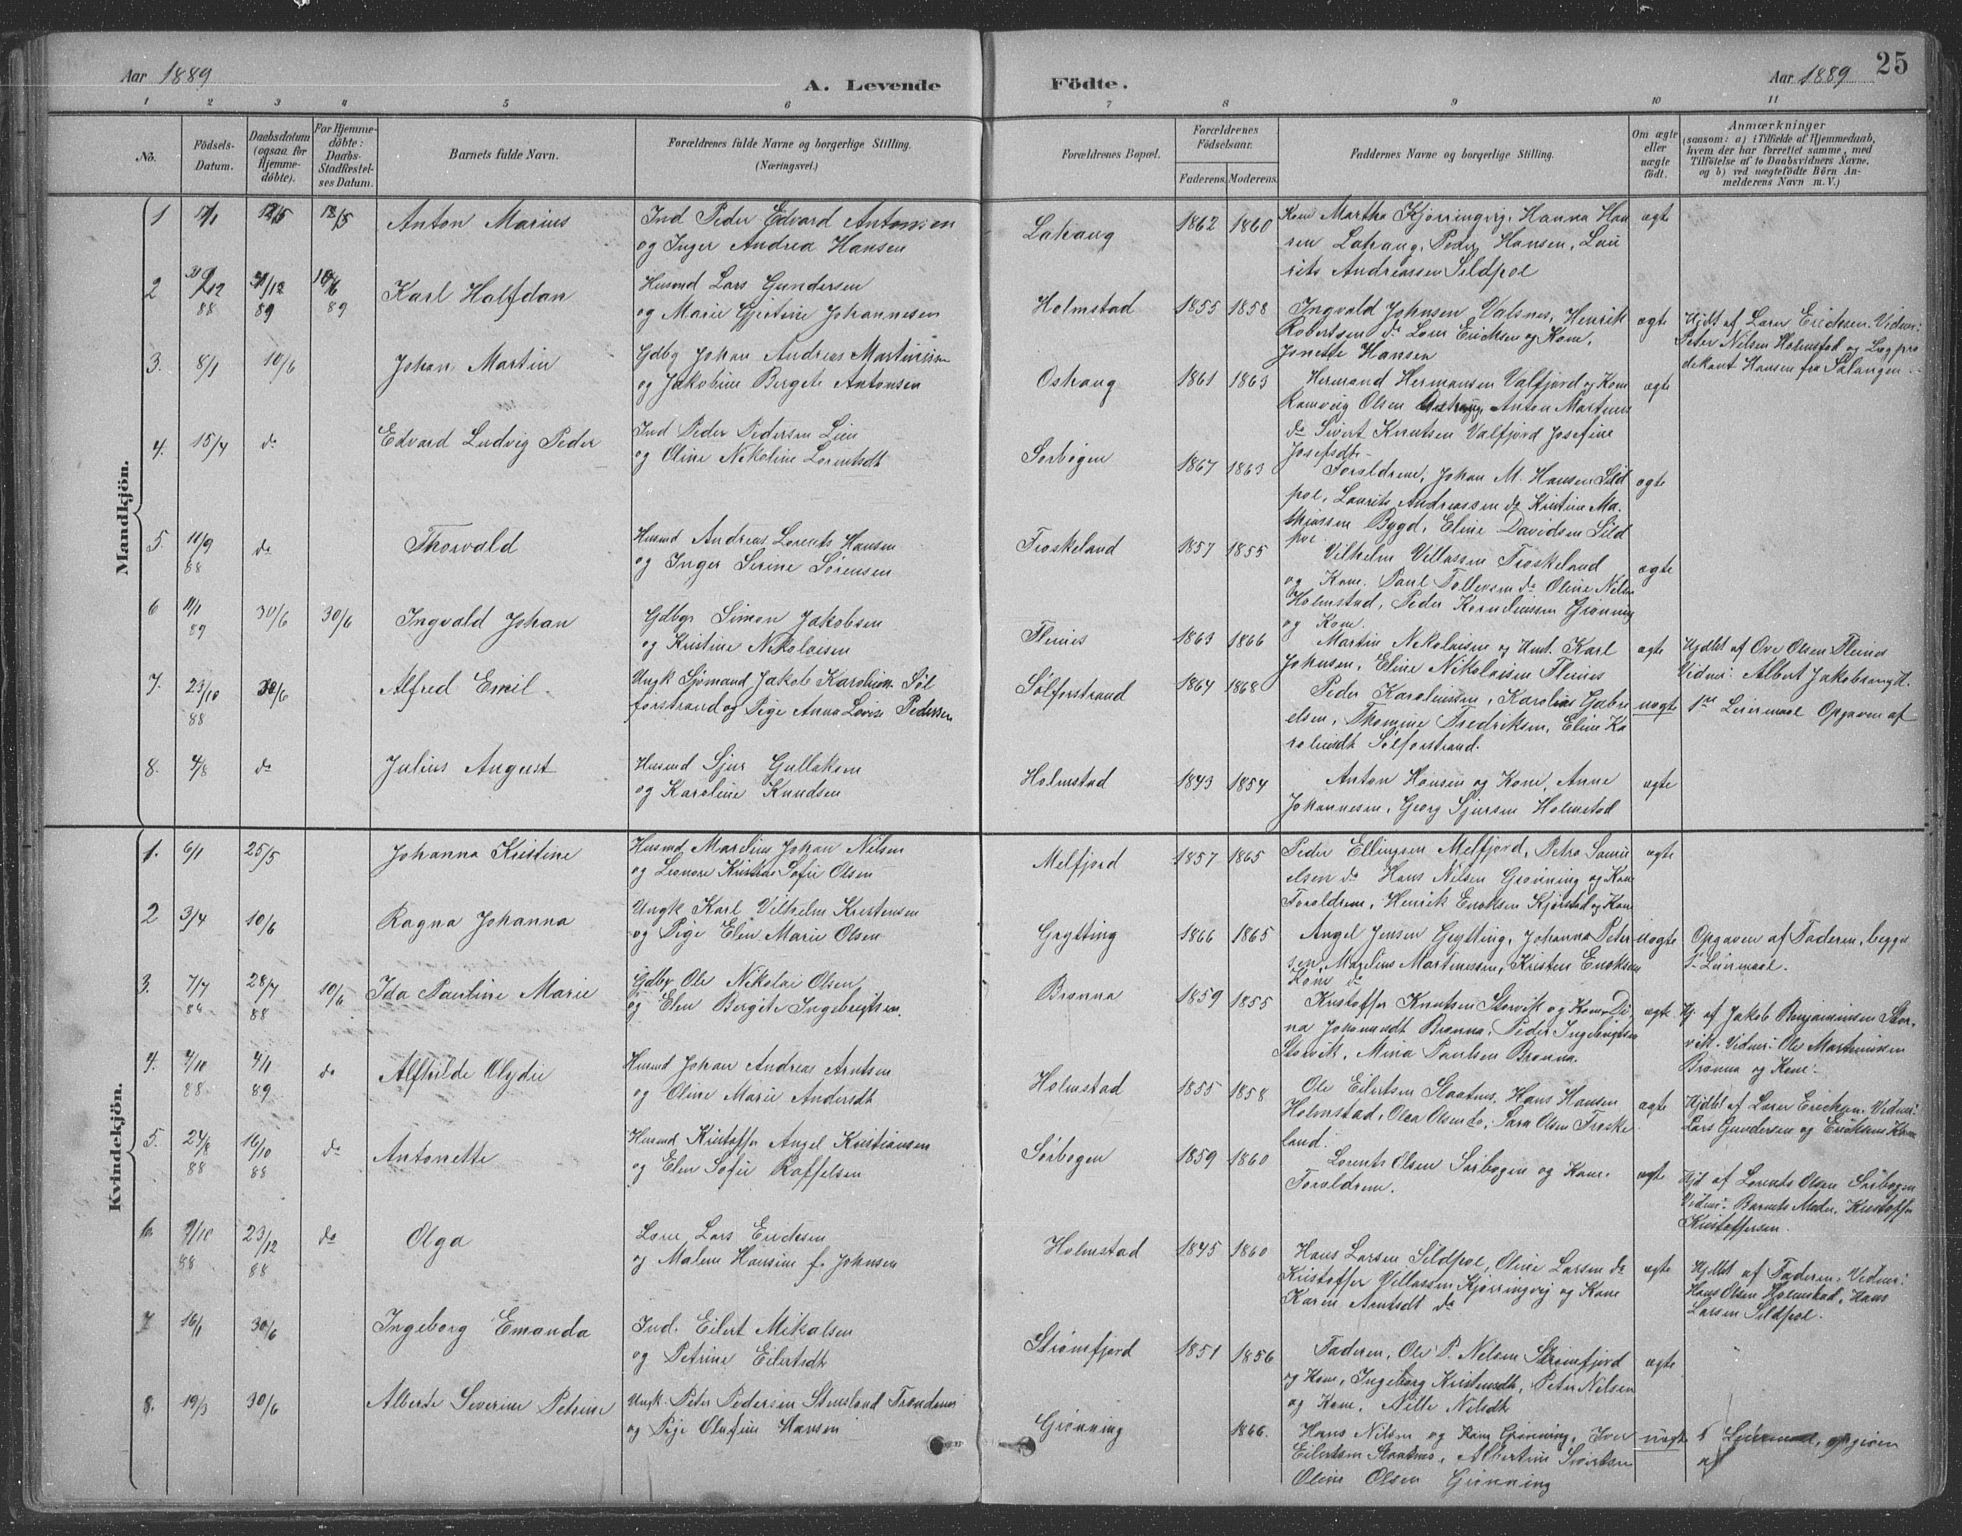 Aar 1889
A. Levende
Födte.
Aar 1889
25
1 2 3 4 5 6 7 8 9 10 11
No.
Födsels-
Datum.
Daabsdatum
(ogsaa for
Hjemme-
döbte).
For Hjemme-
döbte:
Daabs-
Stadfæstel-
ses Datum.
Barnets fulde Navn.
Forældrenes fulde Navne og borgerlige Stilling.
(Næringsvei.)
Forældrenes Bopæl.
Forældrenes
Födselsaar.
Faderens. Moderens.
Faddernes Navne og borgerlige Stilling.
Om ægte
eller
uægte
födt.
Anmærkninger
(saasom: a) i Tilfælde af Hjemmedaab,
hvem der har forrettet samme, med
Tilföielse af to Daabsvidners Navne,
og b) ved uægtefödte Börn An-
melderens Navn m. V.)
Mandkjön.
1 Anton Marius
Ind Peder Edvard Antonsen
og Inger Andrea Hansen
Lahaug 1862 1860
Kone Martha Kjørringvig, Hanna Han
sen Lahaug, Peder Hansen, Lau
rits Andreassen Sildpol
ægte
2 88 31/12 89 10/6 89 Karl Halfdan
Husmd Lars Gundersen
og Marie Gjertine Johannesen
Holmstad 1855 1858
Ingvald Johnsen Valsnes, Henrik
Robertsen do Lorer Ericksen og Kone,
Jonette Hansen
ægte
Hjdt af Lorer Ericksen. Vidner:
Peter Nilsen Holmstad og Lægpræ
dikant Hansen fra Salangen
3. 8/1 10/6 Johan Martin
Gdbg Johan Andreas Martinsen
og Jakobine Bergete Antonsen
Oshaug 1861 1863
Hermand Hermansen Valfjord og Kone
Ramveig Olsen Anton Martinus
do Sivert Knutsen Valfjord Josefine
Josefsdt
ægte
4. 15/4 do Edvard Ludvig Peder
Ind Peder Pedersen Lien
og Oline Nikoline Lorentsdt
Sørbogen 1867 1863
Foraldrene, Johan M. Hansen Sild
pol, Laurits Andreassen do Kristine Ma-
thiassen Bygd, Eline Davidsen Sild
pol
ægte
5. 11/9 88 do Thorvald
Husmd Andreas Lorents Hansen
og Inger Serine Sørensen
Froskeland 1857 1855
Vilhelm Villassen Froskeland
og Kone. Paul Tollevsen do Oline Nilsen
Holmstad, Peder Korneliussen Grønning
og Kone.
ægte
6 11/1 89 30/6 30/6 Ingvald Johan
Gdbgr Simon Jakobsen
og Kristine Nikolaisen
Fleines 1863 1866
Martin Nikolaisen og Hust. Karl
Johnsen, Eline Nikolaisen Fleines
ægte
Hjdbt af Ove Olsen Fleines
Vidner: Albert Jakobsen
7. 23/10 88 30/6 Alfred Emil
Ungk Sjømand Jakob Karoliusen Søl
forstrand og Pige Anna Lovise Pedersen
Sølforstrand 1864 1868
Peder Karoliussen, Karolius Gabri
elsen, Thomine Fredriksen, Eline Ka
rolinsdt Sølforstrand.
uægte
1ste Leiermaal Opgaven af
8. 4/8 do Julius August
Husmd Sjur Gullaksen
og Karoline Knudsen
Holmstad 1843 1854
Anton Hansen og Kone, Anne
Johannesen, Georg Sjursen Holmstad
ægte
Kvindekjön.
1. 6/1 25/5 Johanna Kristine
Husmd Marelius Johan Nilsen
og Leonore Kristine Sofie Olsen
Melfjord 1857 1865
Peder Ellingsen Melfjord, Petra Samu
elsen do Hans Nilsen Grønning og Kone
Foraldrene, Henrik Enoksen Skjørstad og Kone
ægte
2 3/4 10/6 Ragna Johanna
Ungk Karl Vilhelm Kristensen
og Pige Elen Marie Olsen
Grytting 1866 1865
Angel Jensen Grytting, Johanna Peter
sen, Marelius Martinussen, Kristen Enoksen
Kone do
uægte
Opgaven af Faderen, begges
1ste Leiermaal.
3. 7/7 28/7 88 10/6 Ida Pauline Marie
Gdbg Ole Nikolai Olsen
og Elen Bergite Ingebrigtsen.
Brønna 1859 1855
Kristoffer Knutsen Storvik og Kone, Di
na Johansdt Brønna, Peder Ingebrigtsen
Storvik, Mina Paulsen Brønna.
ægte
Hj. af Jakob Benjaminsen Stor-
vik. Vidner: Ole Martinussen
Brønna og Kone.
4. 4/10 88 4/1 89 do Alfhilde Olydie
Husmd Johan Andreas Arntsen
og Oline Marie Andersdt
Holmstad 1855 1858
Ole Eilertsen Slaatnes, Hans Hansen
Holmstad, Olea Olsen do, Sara Olsen Froske
land.
ægte
Hjdbt af Lorer Ericksen. Vidner:
Lars Gundersen og Ericksens Kone
5. 24/8 88 16/10 88 do Antonette
Husmd Kristoffer Angel Kristiansen
og Elen Sofie Roffelsen
Sørbogen 1859 1860
Lorents Olsen Sørbogen og Kone.
Foraldrene.
ægte
Hjd af Lorents Olsen Sørbogen
Vidner: Barnets Moder, Kristoffer
Kristoffersen.
6. 9/10 88 23/12 88 do Olga
Lærer Lars Ericksen
og Malene Hansine f. Johnsen
Holmstad 1845 1860
Hans Larsen Sildpol, Oline Larsen do
Kristoffer Villassen Kjørringvig og Kone
Karen Arntsdt do
ægte
Hjdbt af Faderen, Vidner:
Hans Olsen Holmstad, Hans
Larsen Sildpol.
7 16/1 30/6 Ingeborg Emanda
Ind. Eilert Mikalsen
og Petrine Eilertsdt
Strømfjord 1851 1856
Faderen, Ole P. Nilsen Strømfjord
og Kone, Ingeborg Kristensdt, Peter Nilsen
og Kone, Nille Nilsdt
ægte
8. 19/3 30/6 Alberte Severine Petrine
Ungk. Peter Pedersen Stensland Trondenes
og Pige Olufine Hansen
Grønning 1866.
Hans Nilsen og Kone Grønning, Iver
Eilertsen Slaatnes, Albertine Sivertsen
Oline Olsen Grønning
uægte
1 Leiermaal, opgiven
af